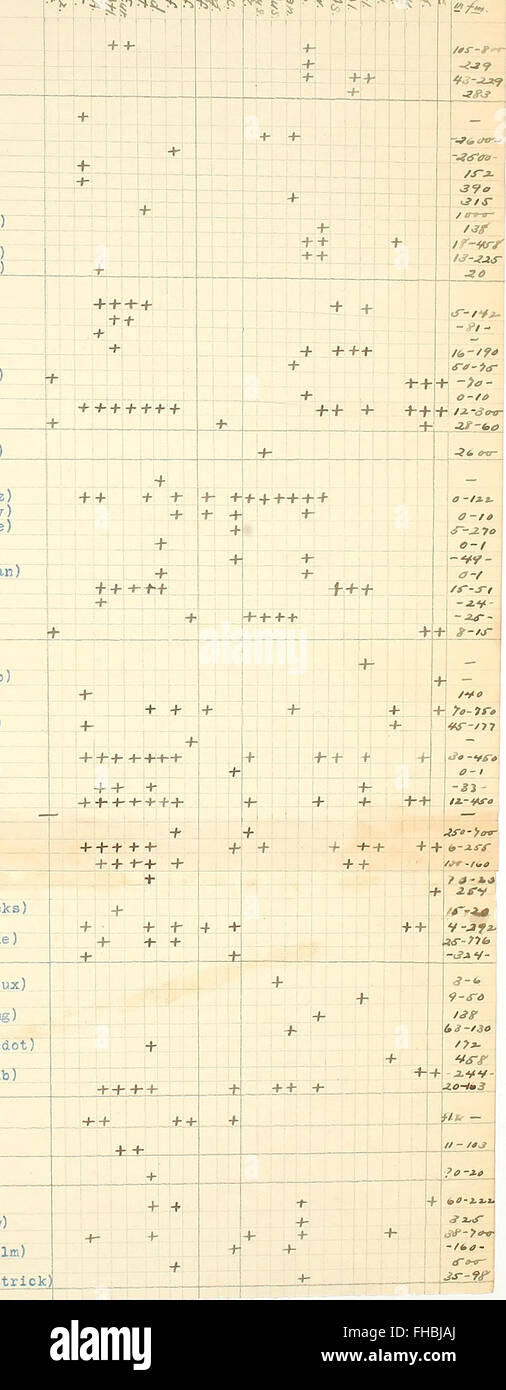 in fm.
+ + + 105-800
+ 229
+ + + 43-229
+ 283
+ -
+ + -2600-
+ -2500-
+ 152
+ 390
+ 315
+ 1000
) + 138
+ + + 18-458
) + + 13-225
) + 20
+ + + + + + 5-142
+ + -81-
+ -
+ + + + + 16-190
+ 50-75
) + + + + -70-
+ 0-10
+ + + + + + + + + + + + + 12-300
+ + + 28-60
) + 2600
+ -
z) + + + + + + + + + + + + 0-122
y) + + + + 0-10
e) + 5-270
+ 0-1
+ + -49-
an) + + 0-1
+ + + + + + + + 15-51
+ -24-
+ + + + + -25-
+ + + 8-15
+ -
o) + -
+ 140
+ + + + + + 70-750
) + + 45-177
+ -
+ + + + + + + + + + + + 30-450
+ 0-1
+ + + + -33-
+ + + + + + + + + + + + 12-450
— —
+ + 250-700
+ + + + + + + + + + + + 6-255
+ + + + + + + 100-160
+ ?0-20
+ 254
cks) + 15-20
+ + + + + + + 4-292
e) + + + 25-776
+ + -324-
ux) + 3-6
+ 9-50
g) + 138
+ 63-130
dot) + 172
+ 458
b) + + -244-
+ + + + + + + + 20-103
+ + + + + -
+ + 11-103
+ ?0-20
+ + + + 60-222
) + 325
+ + + + + 38-700
lm) + + -160-
+ 500
trick) + 35-98
alamy
alamy
Image ID: FHBJAJ
www.alamy.com